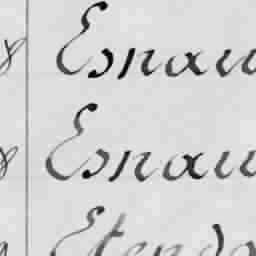 8 Esnau
8 Esnau
Etenda